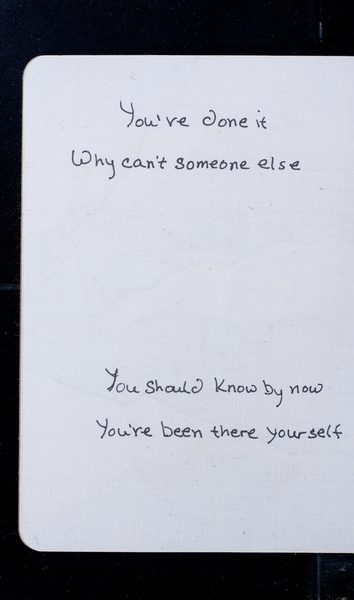 You've done it
Why can't someone else
You should know by now
You're been there yourself